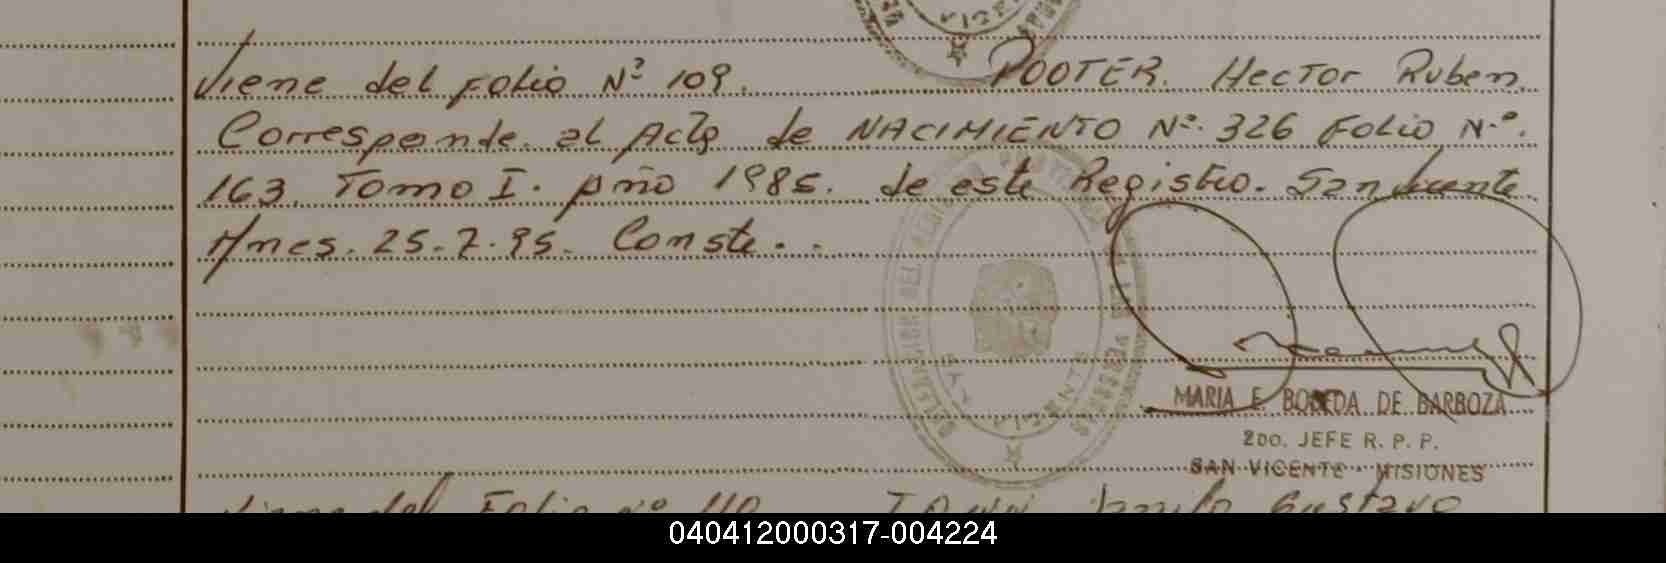 Viene del Folio Nº 109. POOTER. Hector Ruben.
Corresponde. al Acta de NACIMIENTO Nº. 326 Folio N.º.
163. Tomo I. Año 1985. de este Registro. San Vicente
Mnes. 25.7.95. Conste..
MARIA E. BOBEDA DE BARBOZA
2DO. JEFE R. P. P.
SAN VICENTE - MISIONES
Viene del Folio nº 110 Gustavo
040412000317-004224